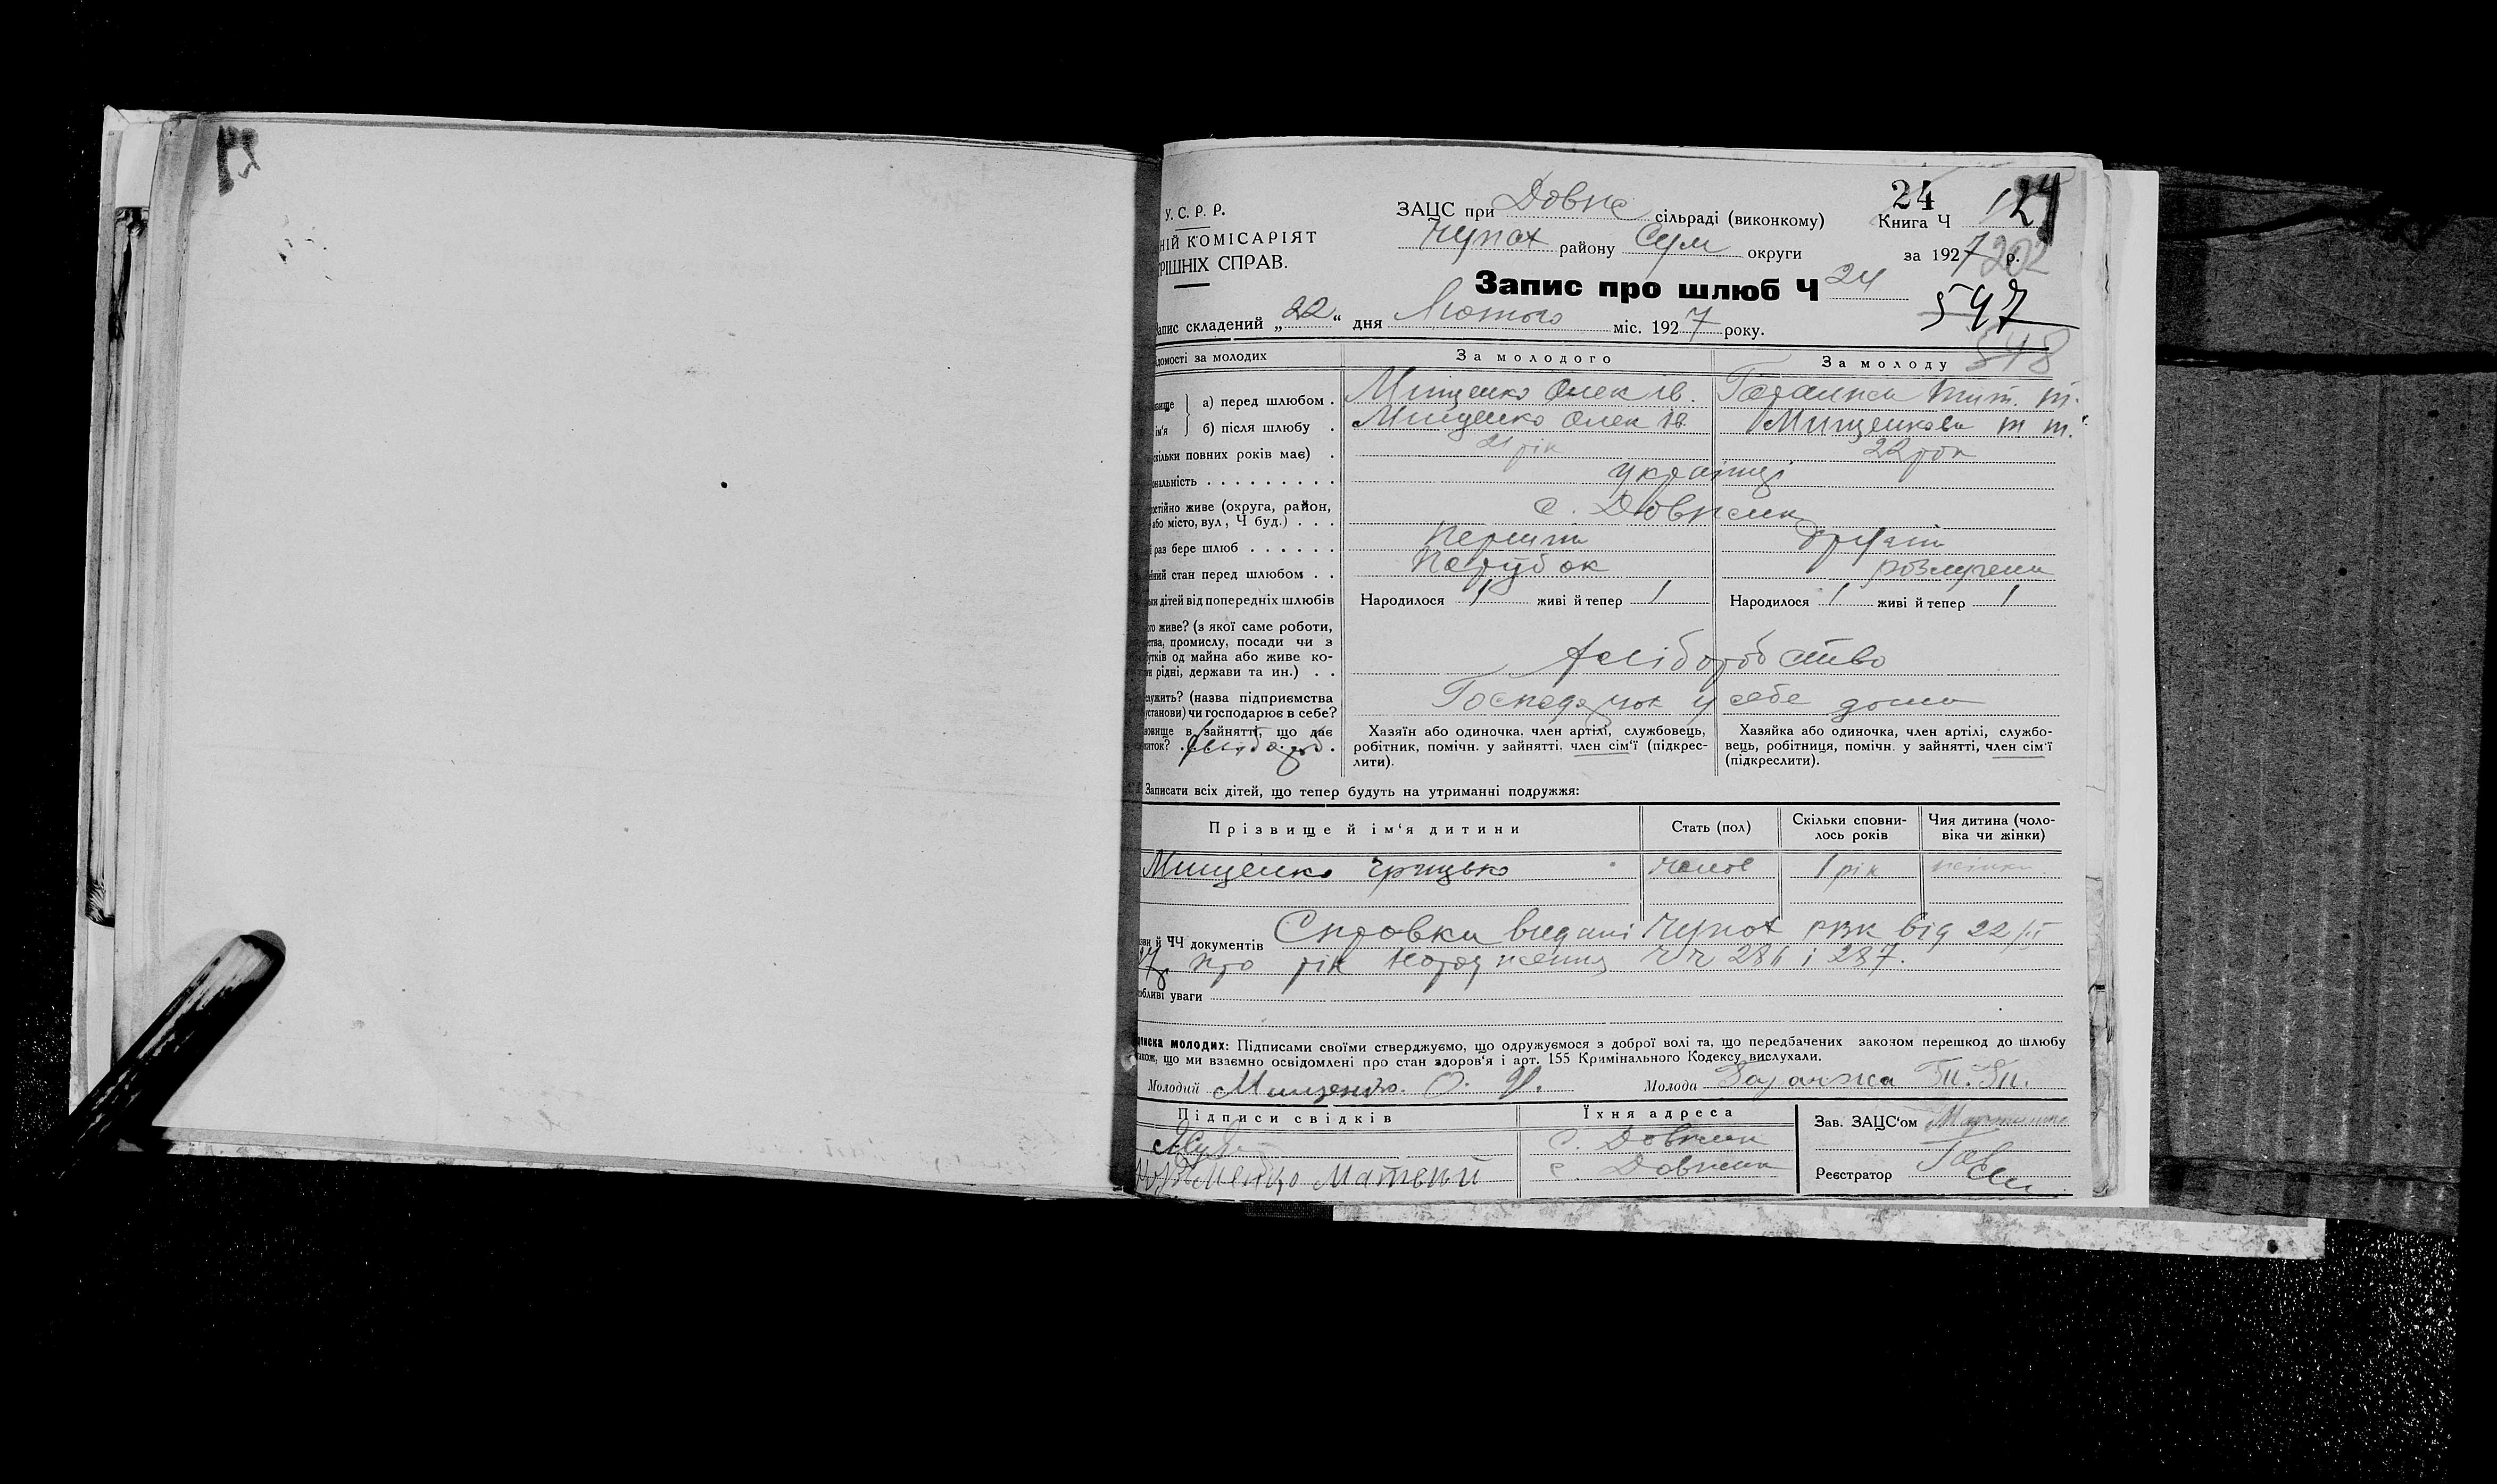 24
У. С. Р. Р.
ЗАЦС при Довж сільраді (виконкому)
Книга Ч
НІЙ КОМІСАРІЯТ
Чупах району Сум округи
за 1927 р.
202
РІШНІХ СПРАВ.
Запис про шлюб Ч 24
547
апис складений „22“ дня Лютого міс. 1927 року.
548
домості за молодих За молодого За молоду
вище а) перед шлюбом . Мищенко Олек Ів.
ім'я б) після шлюбу . Мищенко Олек Ів. Мищенкова т т.
скільки повних років має) . 21 рік 22 рок
ональність . . . . . . . . . українці
остійно живе (округа, район,
або місто, вул, Ч буд.) . . . с. Довжик
раз бере шлюб . . . . . . Перший другий
ний стан перед шлюбом . . Парубок розлучена
ки дітей від попередніх шлюбів Народилося / живі й тепер / Народилося 1 живі й тепер 1
го живе? (з якої саме роботи,
ства, промислу, посади чи з
утків од майна або живе ко-
и рідні, держави та ин.) . . Хліборобство
служить? (назва підприємства
установи) чи господарює в себе? у себе дома
овище в зайнятті, що дає
иток? хлібороб.
Хазяїн або одиночка, член артілі, службовець,
робітник, помічн. у зайнятті, член сім'ї (підкрес-
лити).
Хазяйка або одиночка, член артілі, службо-
вець, робітниця, помічн. у зайнятті, член сім'ї
(підкреслити).
Записати всіх дітей, що тепер будуть на утриманні подружжя:
Прізвище й ім'я дитини Стать (пол) Скільки сповни-
лось років Чия дитина (чоло-
віка чи жінки)
Мищенко Грицько чолов 1 рік жінки
зви й ЧЧ документів Справки видані Чупах РВК від 22/II
27 про рік народження ЧЧ 286 і 287.
обливі уваги
писка молодих: Підписами своїми стверджуємо, що одружуємося з доброї волі та, що передбачених законом перешкод до шлюбу
акож, що ми взаємно освідомлені про стан здоров'я і арт. 155 Кримінального Кодексу вислухали.
Молодий Мищенко. О. И. Молода
Підписи свідків Їхня адреса Зав. ЗАЦС'ом
с. Довжик
Матвий с. Довжик Реєстратор